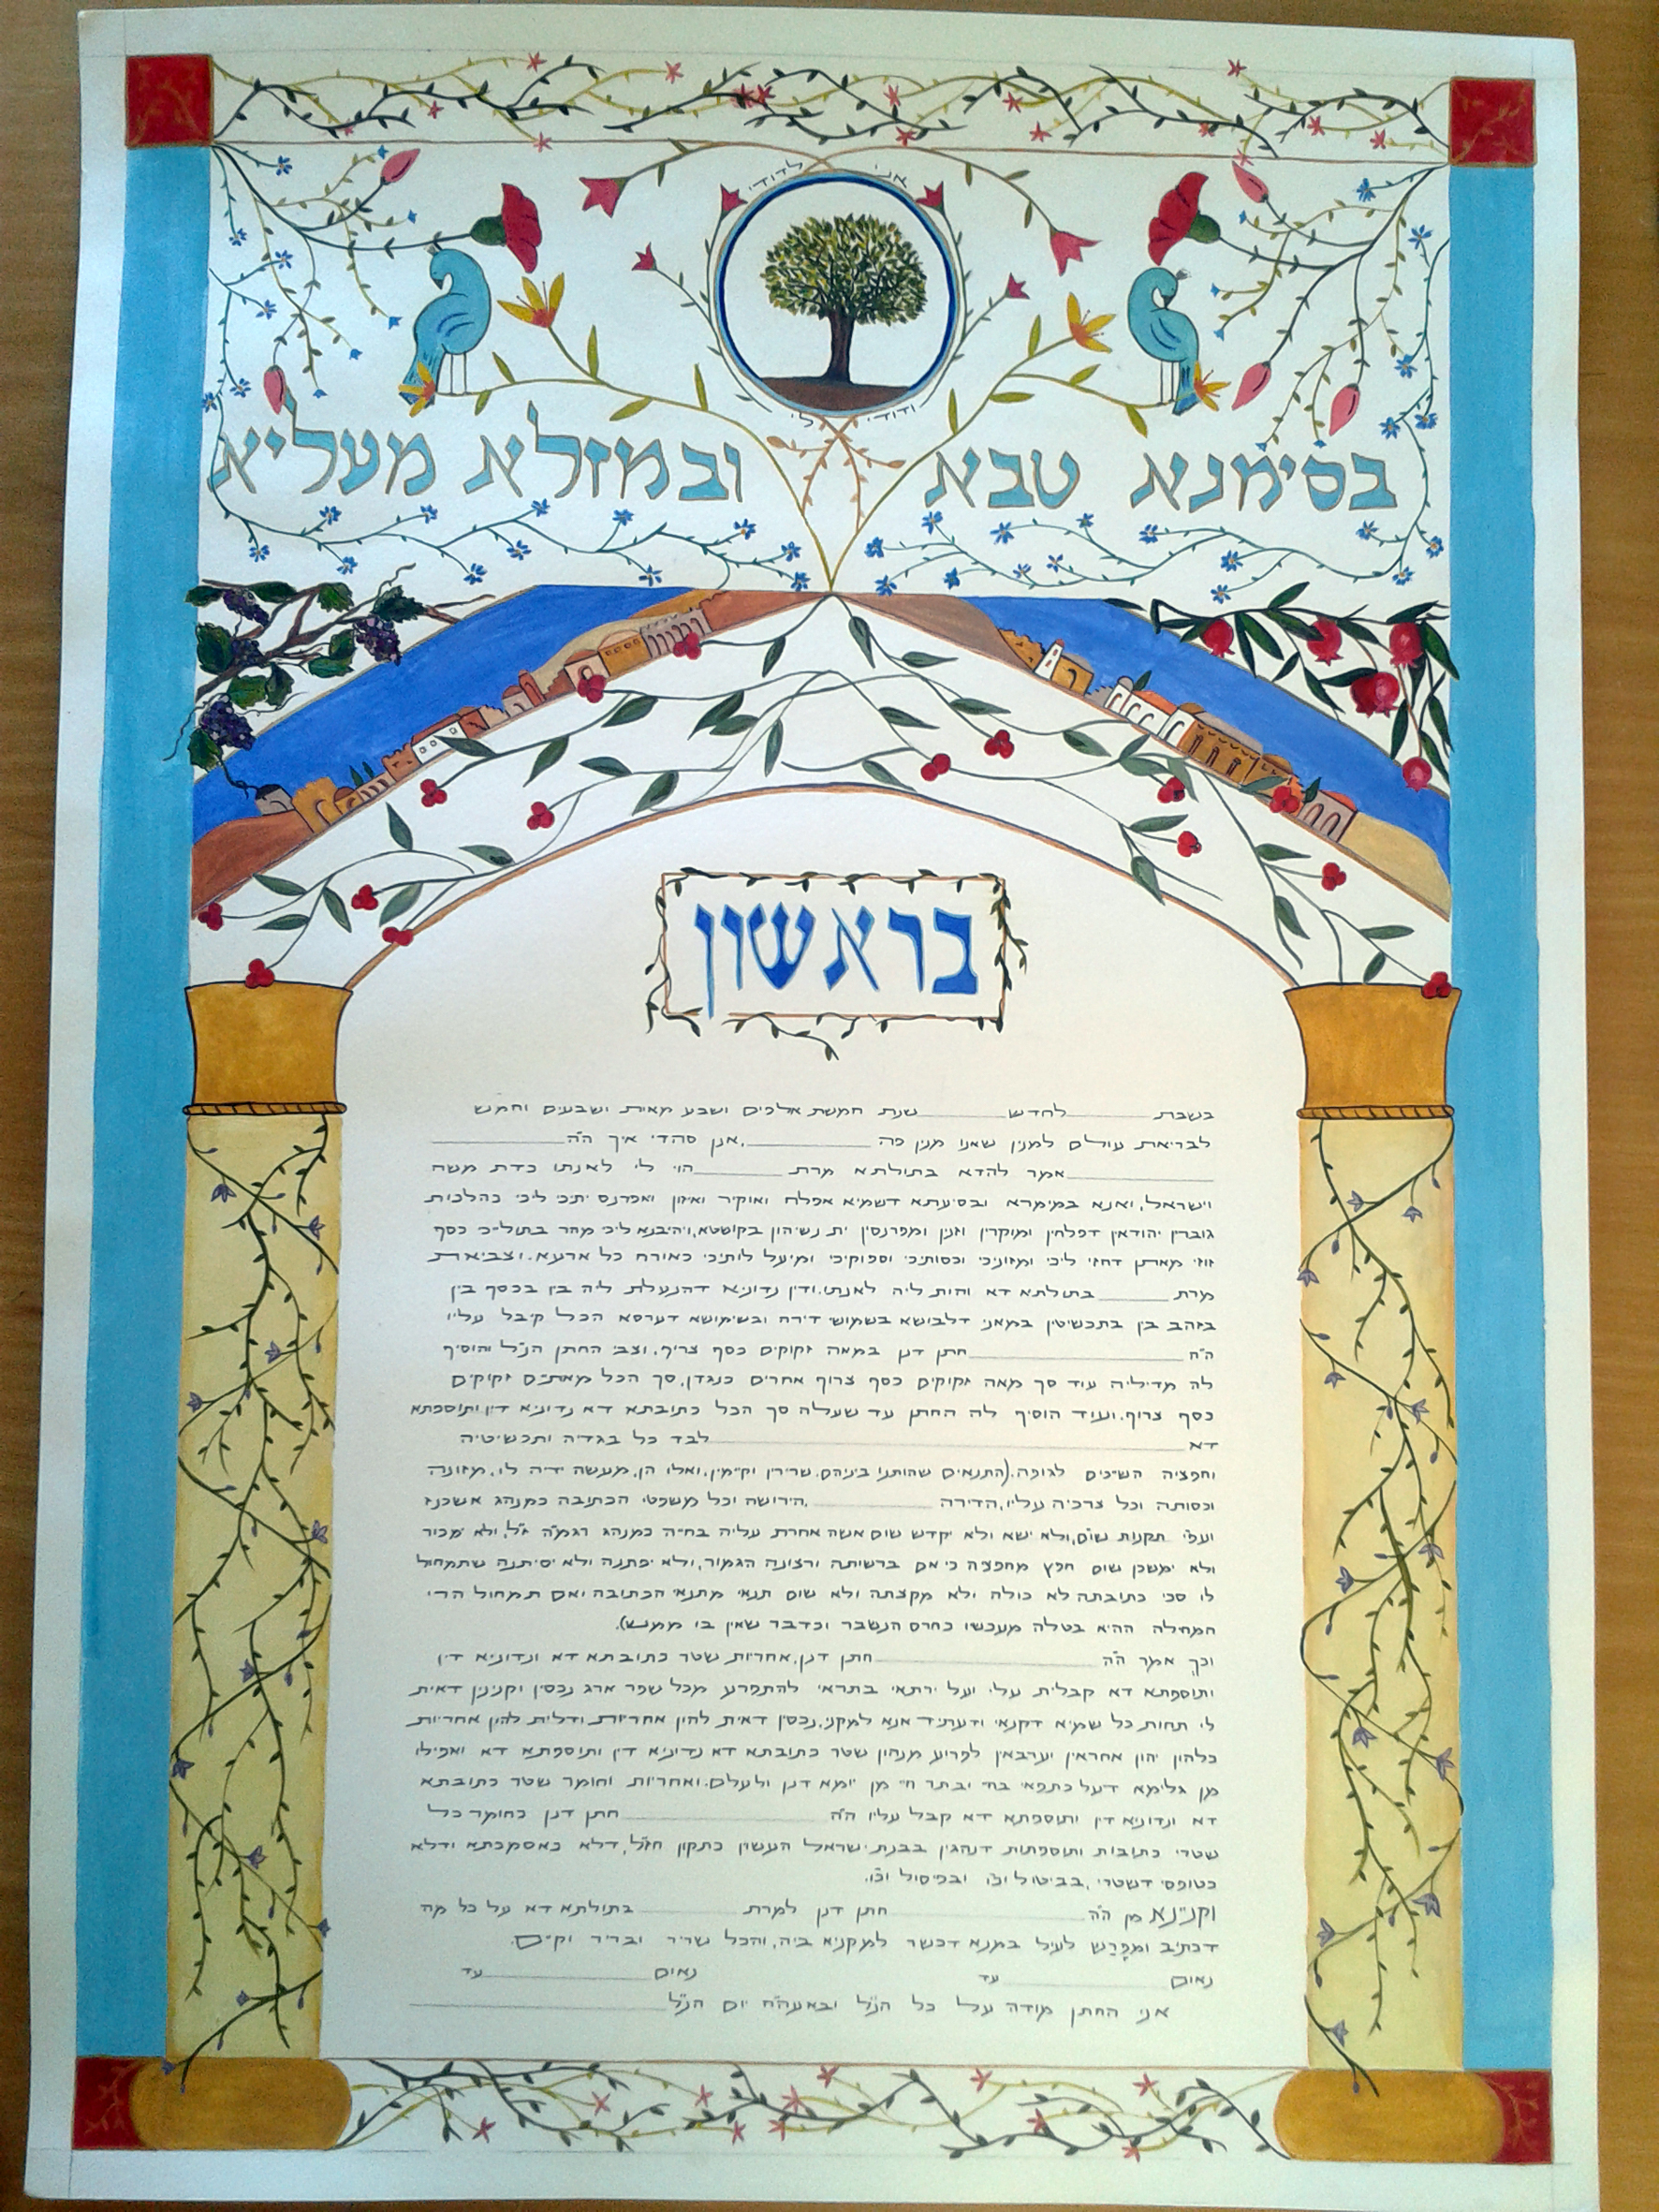 אני לדודי
ודודי לי
בסימנא טבא ובמזלא מעליא
בראשון
בשבת ________ לחדש ________ שנת חמשת אלפים ושבע מאות ושבעים וחמש
לבריאת עולם למנין שאנו מנין פה ________, אנן סהדי איך ה"ה ________
________ אמר להדא בתולתא מרת ________ הוי לי לאנתו כדת משה
וישראל, ואנא במימרא ובסיעתא דשמיא אפלח ואוקיר ואיזון ואפרנס יתיכי ליכי כהלכות
גוברין יהודאין דפלחין ומוקרין וזנין ומפרנסין ית נשיהון בקושטא, ויהיבנא ליכי מהר בתוליכי כסף
זוזי מאתן דחזי ליכי ומזוניכי וכסותיכי וספוקיכי ומיעל לותיכי כאורח כל ארעא. וצביאת
מרת ________ בתולתא דא והות ליה לאנתו. ודין נדוניא דהנעלת ליה בין בכסף בין
בזהב בין בתכשיטין במאני דלבושא בשמושי דירה ובשימושא דערסא הכל קיבל עליו
ה"ה ________ חתן דנן במאה זקוקים כסף צריף. וצבי החתן הנ"ל והוסיף
לה מדיליה עוד סך מאה זקוקים כסף צרוף אחרים כנגדן, סך הכל מאתים זקוקים
כסף צרוף. ועוד הוסיף לה החתן עד שעלה סך הכל כתובתא דא נדוניא דין ותוספתא
דא ________ לבד כל בגדיה ותכשיטיה
וחפציה השיכים לגופה. (התנאים שהותנו ביניהם שרירין וקימין. ואלו הן, מעשה ידיה לו, מזונה
וכסותה וכל צרכיה עליו, הדירה ________, הירושה וכל משפטי הכתובה כמנהג אשכנז
ועפ"י תקנות שו"ם, ולא ישא ולא יקדש שום אשה אחרת עליה בחייה כמנהג רגמ"ה ז"ל, ולא ימכור
ולא ימשכן שום חפץ מחפציה כי אם ברשיתה ורצונה הגמור, ולא יפתנה ולא יסיתנה שתמחול
לו סכי כתובתה לא כולה ולא מקצתה ולא שום תנאי מתנאי הכתובה ואם תמחול הרי
המחילה ההיא בטלה מעכשו כחרס הנשבר וכדבר שאין בו ממש).
וכך אמר ה"ה ________ חתן דנן, אחריות שטר כתובתא דא ונדוניא דין
ותוספתא דא קבלית עלי ועל ירתאי בתראי להתפרע מכל שפר ארג נכסין וקנינין דאית
לי תחות כל שמיא דקנאי ודעתיד אנא למקני, נכסין דאית להון אחריות ודלית להון אחריות
כלהון יהון אחראין וערבאין לפרוע מנהון שטר כתובתא דא נדוניא דין ותוספתא דא ואפילו
מן גלימא דעל כתפאי בחיי ובתר חיי מן יומא דנן ולעלם. ואחריות וחומר שטר כתובתא
דא ונדוניא דין ותוספתא דא קבל עליו ה"ה ________ חתן דנן כחומר כל
שטרי כתובות ותוספתות דנהגין בבנת ישראל העשוין כתקון חז"ל, דלא כאסמכתא ודלא
כטופסי דשטרי, בביטול וכ'ו ובפיסול וכ'ו.
וקנינא מן ה"ה ________ חתן דנן למרת ________ בתולתא דא על כל מה
דכתיב ומפרש לעיל במנא דכשר למקניא ביה, והכל שריר ובריר וקים.
נאום ________ עד נאום ________ עד
אני החתן מודה על כל הנ"ל ובאעה"ח יום הנ"ל ________